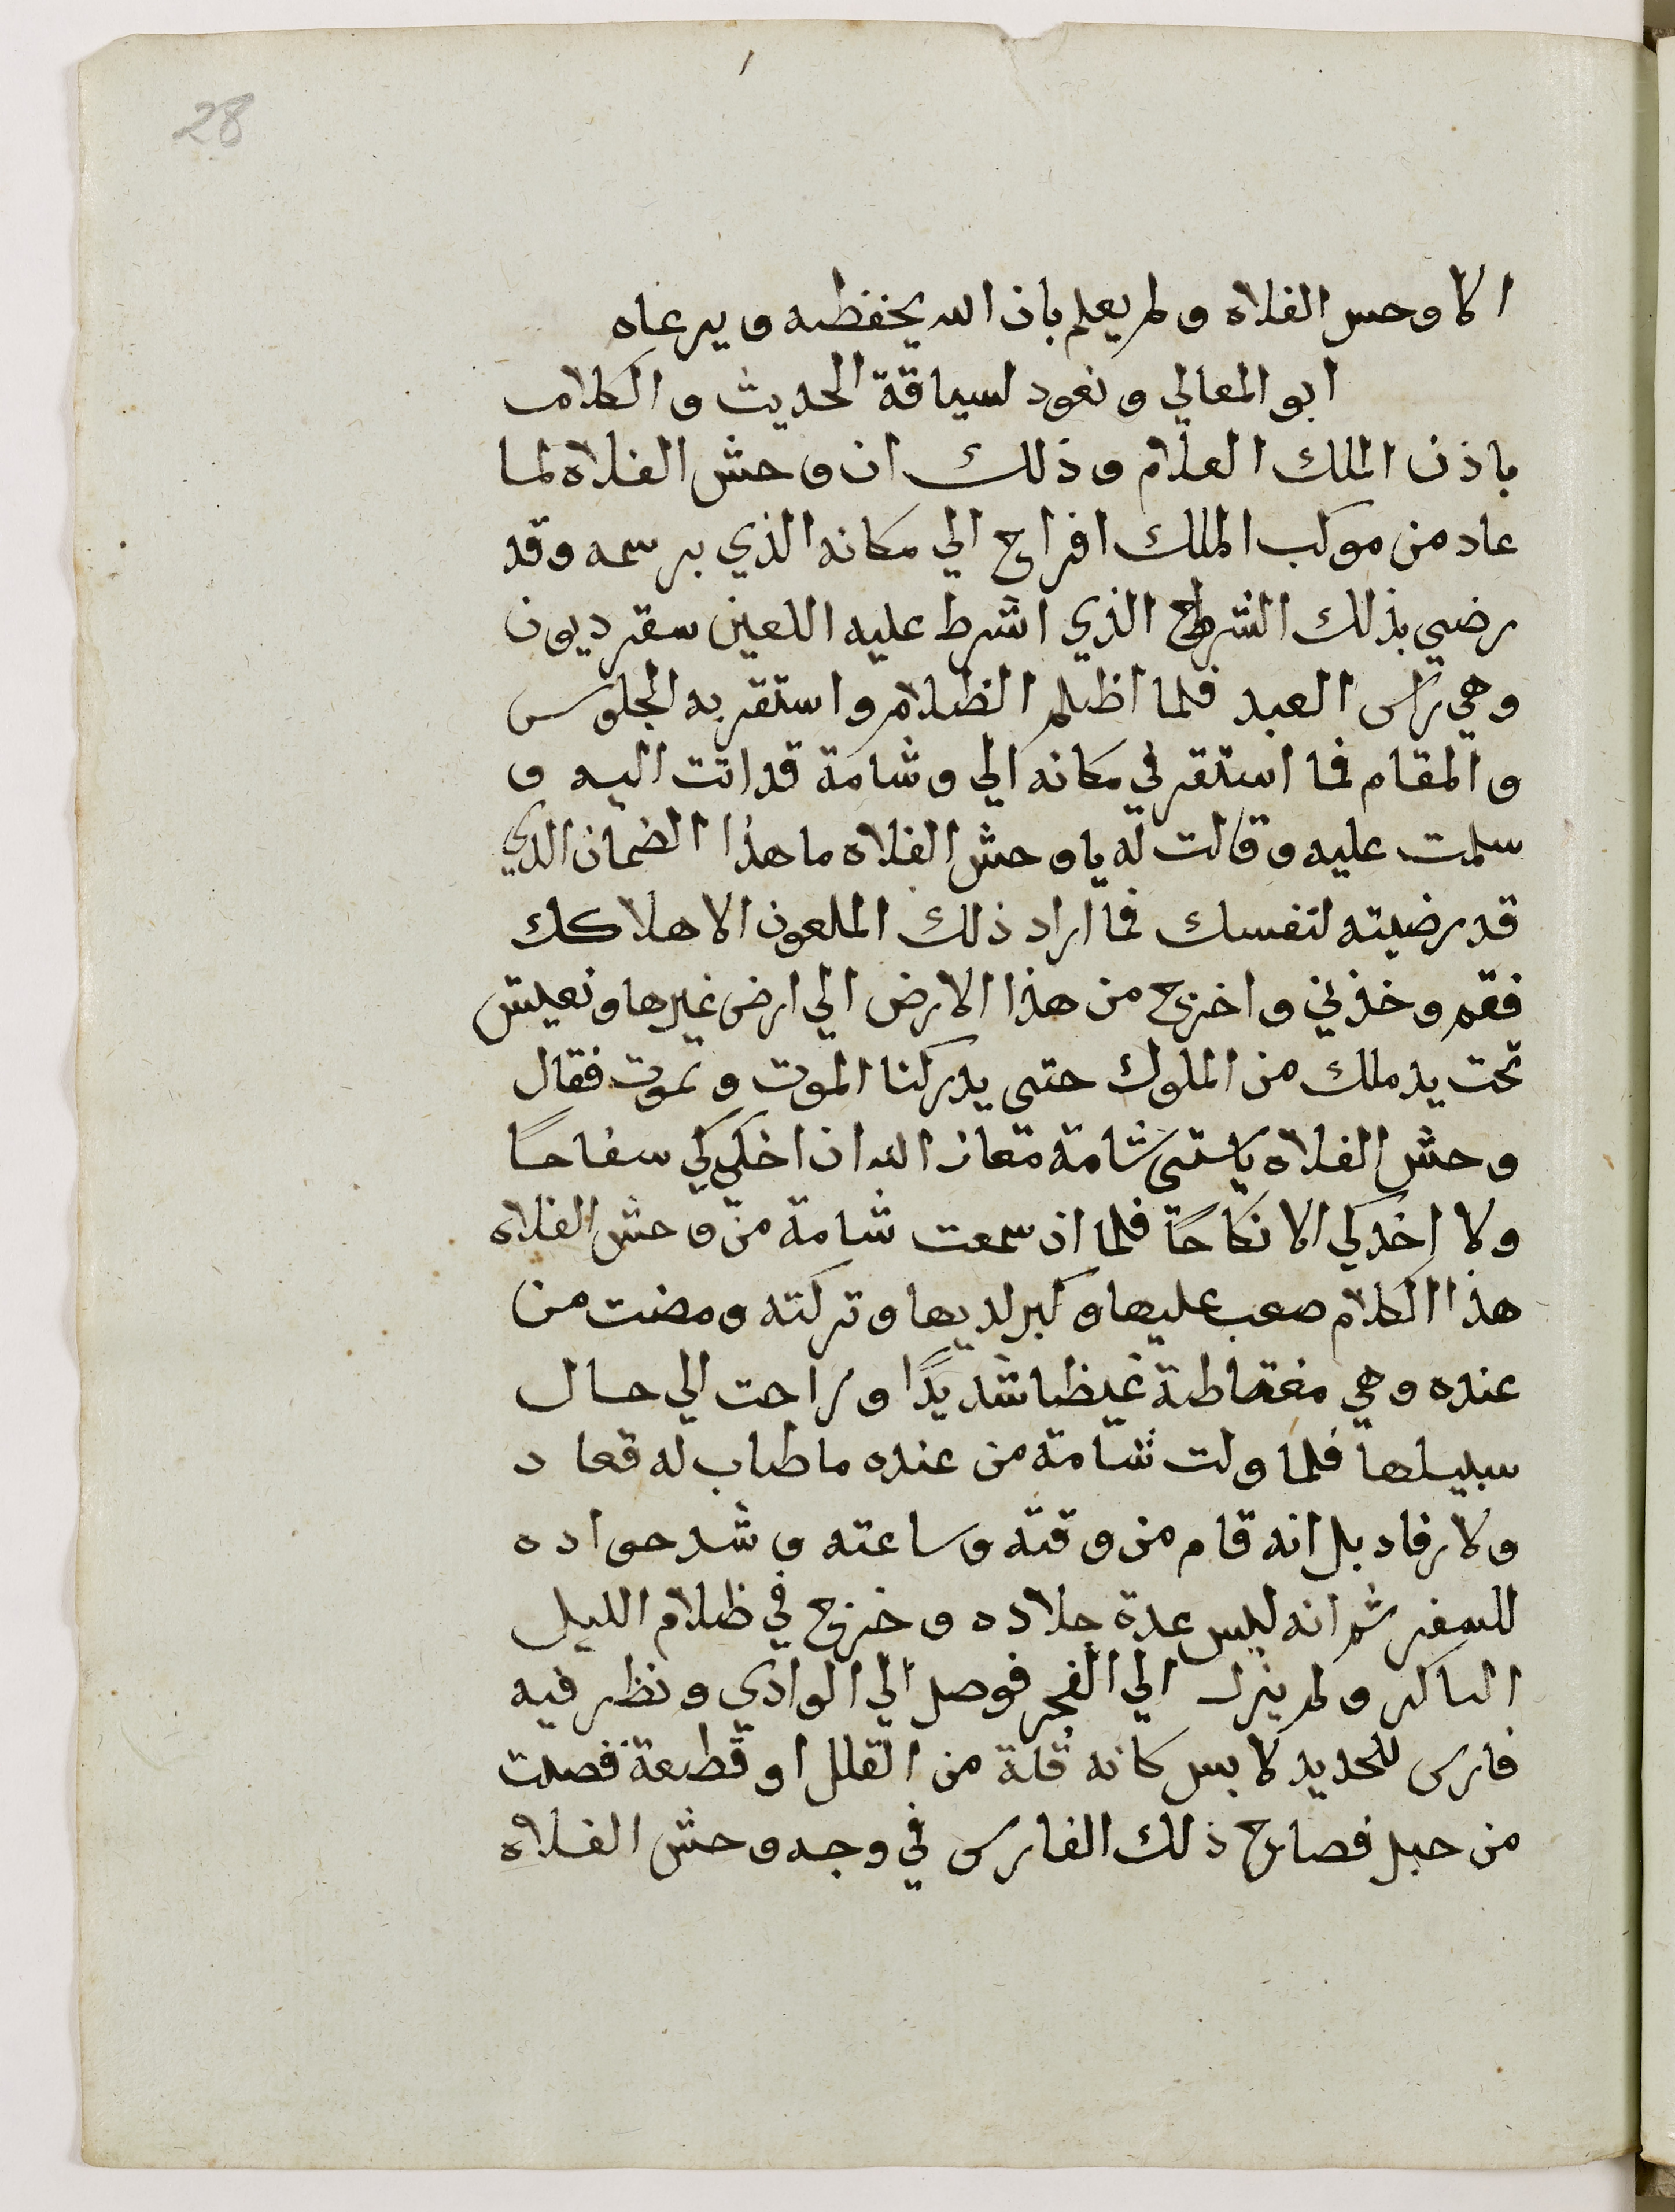 28
الا وحس الفلاه ولم يعلم بان الله يحفظه ويرعاه
ابو المعالي ونعود لسياقة الحديث والكلام
باذن الملك العلام وذلك ان وحش الفلاه لما
عاد من موكب الملك افراح الي مكانه الذي برسمه وقد
رضي بذلك الشرط الذي اشرط عليه اللعين سقرديون
وهي راس العبد فلما اظلم الظلام واستقر به الجلوس
والمقام فما استقر في مكانه الي وشامة قد اتت اليه و
سلمت عليه وقالت له يا وحش الفلاه ما هذا الضمان الذي
قد رضيته لنفسك فما اراد ذلك الملعون الا هلاكك
فقم وخذني واخرج من هذا الارض الي ارض غيرها ونعيش
تحت يد ملك من الملوك حتى يدركنا الموت ونموت فقال
وحش الفلاه ياستي شامة معاذ الله ان اخلي كي سفاحا
ولا اخدكي الا نكاحًا فلما اذ سمعت شامة من وحش الفلاه
هذا الكلام صعب عليها وكبر لديها وتركته ومضت من
عنده وهي مغتاظة غيظا شديدًا وراحت الي حال
سبيلها فلما ولت شامة من عنده ما طاب له قعاد
ولا رقاد بل انه قام من وقته وساعته وشد جواده
للسفر ثم انه لبس عدة جلاده وخرج في ظلام الليل
الباكر ولم يزل الي الفجر فوصل الي الوادي ونظر فيه
فارس للحديد لابس كانه قلة من القلل او قطعة فصلت
من جبل فصاح ذلك الفارس في وجه وحش الفلاه